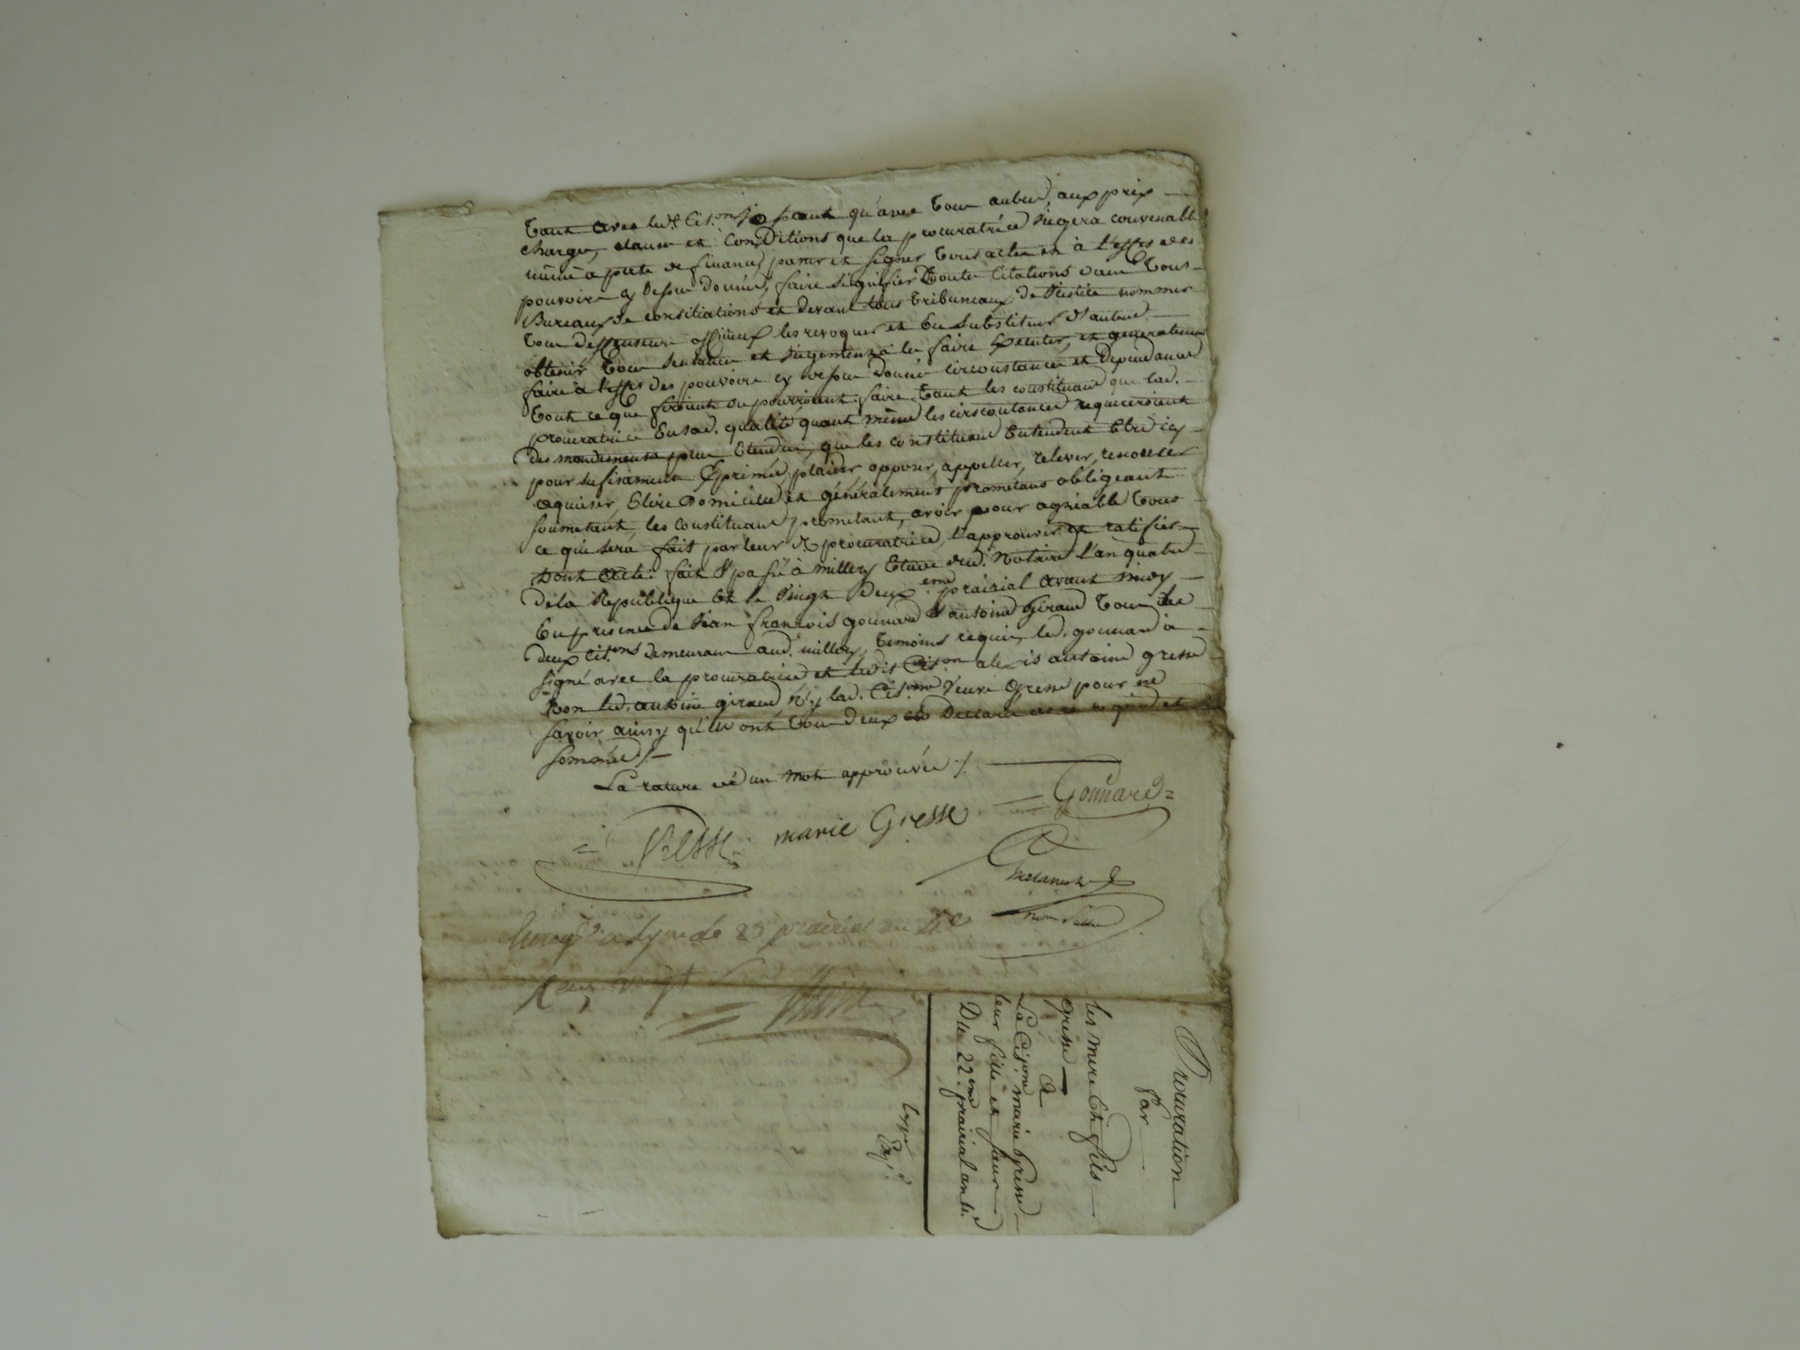 tant avec led. Cit.on qu'avec tous autres, aux prix
charges, clauses et conditions que la procuratrice jugera convenable
même a perte de finance, passer et signer tous actes et à l'effet des
pouvoirs cy dessus donnés, faire signifier toutes citations dans tous
Bureaux de consiliations et devant tous tribuneaux de justice nommer
tous deffenseurs officieux les revoquer et en substituer d'autres
obtenir tous sentences et jugements les faire executer, et generalement
faire à l'effet des pouvoirs cy dessus donnés circonstances et dependances
tout ce que feroient ou pourroient faire tant les constituans que lad.
procuratrice en sad. qualité quant même les circoutances requereroient
des mandements plus etendus, que les constituans entendent etre icy
pour sufisament exprimés, plaider opposer, appeller, relever, renoncer
aquiescer, elire domicille et généralement prometans obligeant
soumetant les constituans prometant, avoir pour agréable tous
ce qui sera fait par leur procuratrice, l'approuver et ratifier
Dont acte: fait & passé à millery etude dud. Notaire l'an quatre
de la Republique et le vingt deux eme prairial avant midy
En presence de Jean françois gonnard & antoine Giraud tous les
deux cit.ens demeurans aud. millery, temoins requis, led. gonnard a
signé avec la procuratrice et ledit Cit.on alexis antoine gresse
non led. antoine giraud ny lad. Cit.enne veuve Gresse pour ne
savoir ainsy qu'ils ont tous deux declaré de ce requis et
sommés /.
La rature de un mot approuvée /.
Gonnard
Gresse marie Gresse
a Lyon le 23 prairial an 4e
Procuration
Par
les mere et fils
gresse
a
La Cit.enne marie Gresse
leur fille et sœur
Du 22eme prairial an 4.